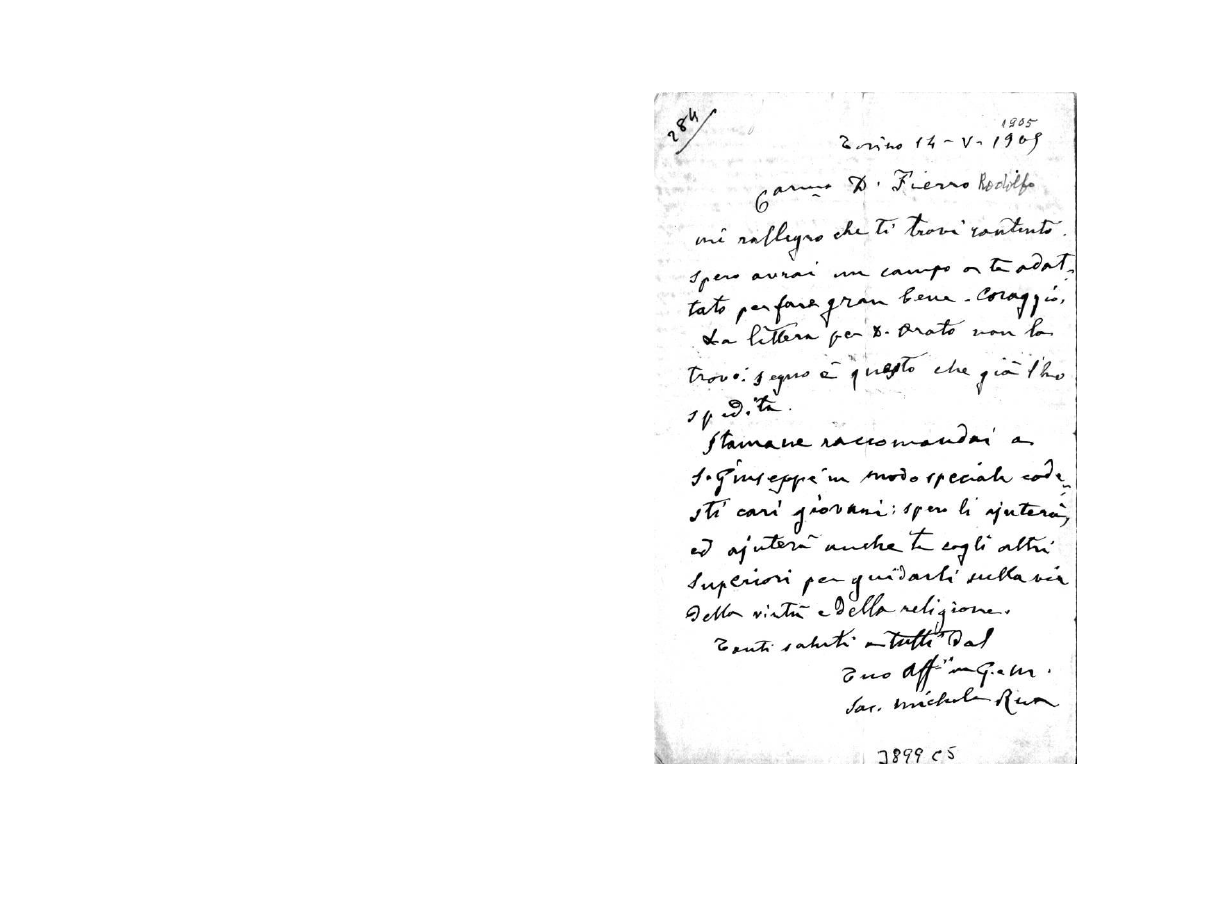 284
1905
Torino 14-V-1905
Carmo D. Fierro Rodolfo
mi rallegro che ti trovi contento.
spero avrai un campo a te adat-
tato per fare gran bene. Coraggio.
La lettera per D. Orato non la
trovo: segno è questo che già l'ho
spedita.
Stamane raccomandai a
S. Giuseppe in modo speciale code-
sti cari giovani: spero li ajuterà,
ed ajuterà anche te cogli altri
Superiori per guidarli sulla via
della virtù e della religione.
Tanti saluti a tutti dal
Tuo Aff.mo in G. e M.
Sac. Michele Rua
3899 C5